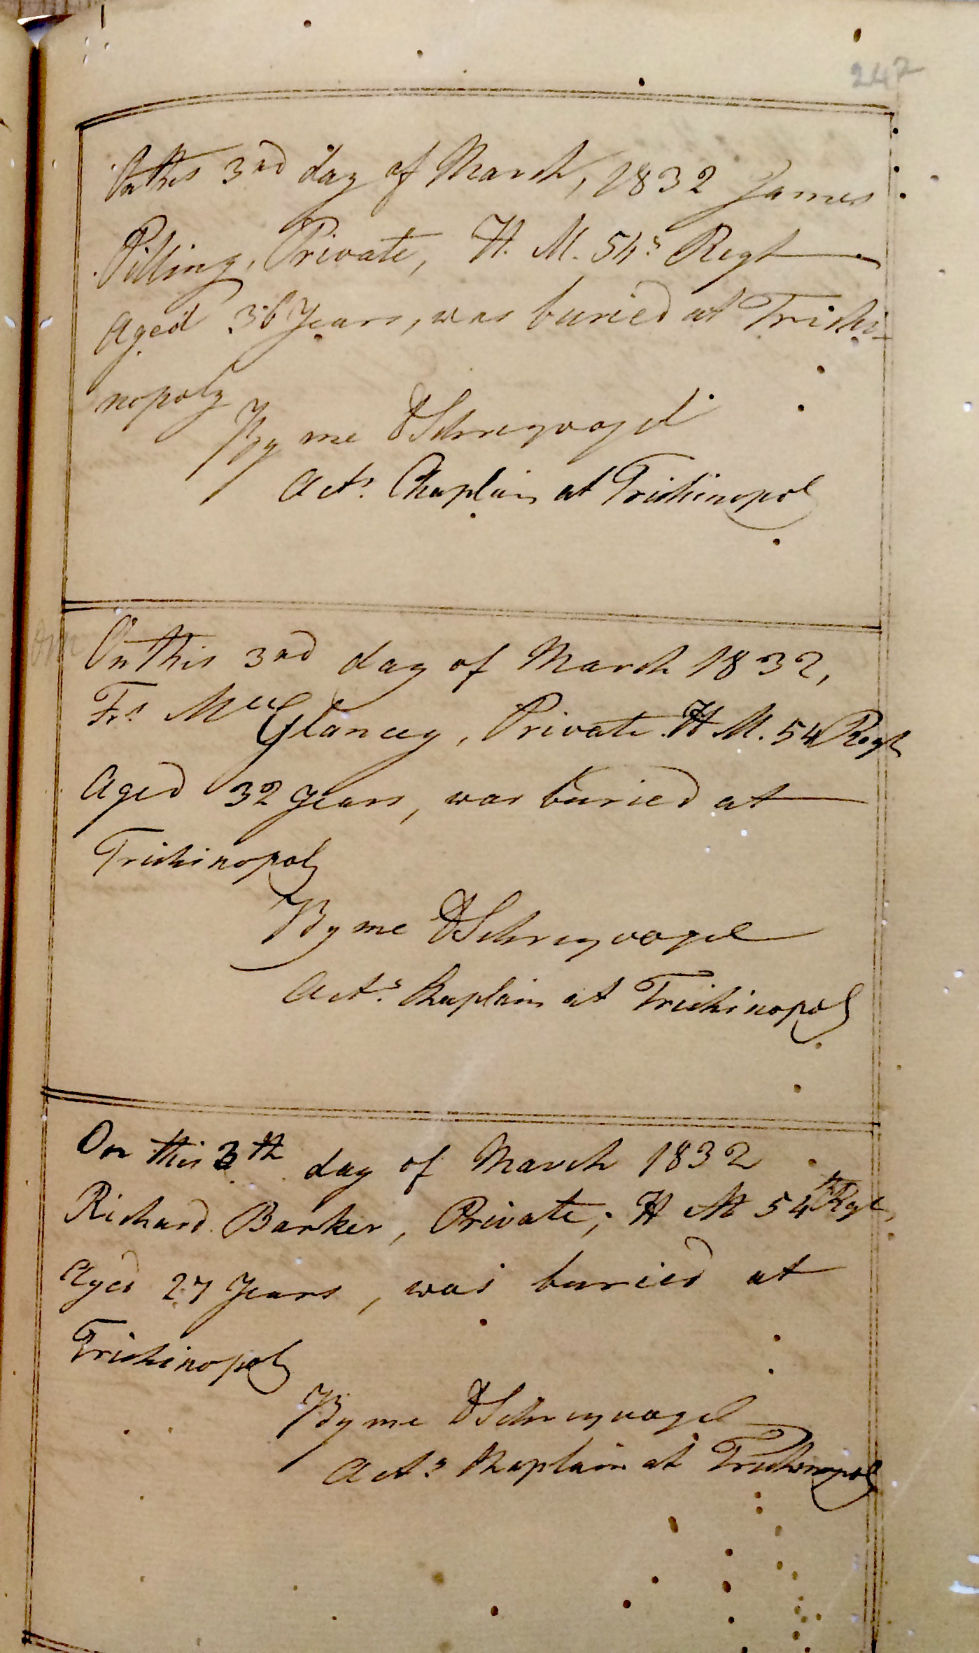 247
On this 3rd day of March, 1832 James
Pilling, Private, H. M. 54s Regt
Aged 36 Years, was buried at Trichi-
nopoly
By me DSchreyvogel
Actg Chaplain at Trichinopoly
On this 3rd day of March 1832,
Frs McGlancey, Private H M. 54 Regt
Aged 32 years, was buried at
Trichinopoly
By me DSchreyvogel
Actg Chaplain at Trichinopoly
On this 3th day of March 1832
Richard Barker, Private, H M 54th Regt,
Aged 27 Years, was buried at
Trichinopoly
By me DSchreyvogel
Actg Chaplain at Trichinopoly